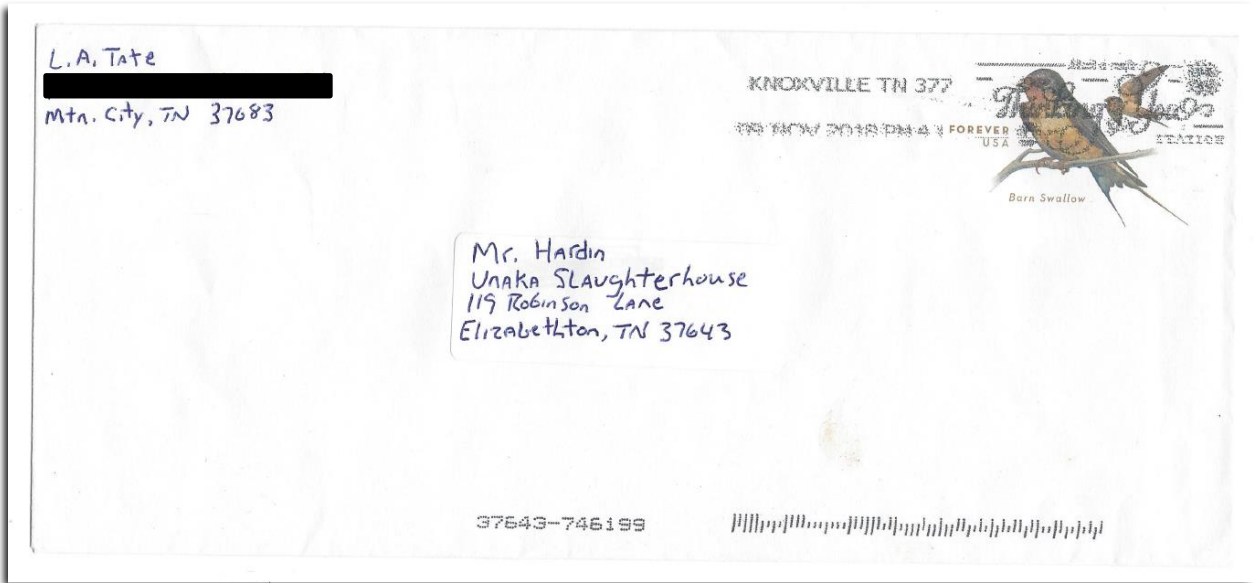 L.A. Tate
Mtn. City, TN 37683
KNOXVILLE TN 377
09 NOV 2018 PM 4 L
FOREVER
USA
Thinking of You
STATION
Barn Swallow
Mr. Hardin
Unaka Slaughterhouse
119 Robinson Lane
Elizabethton, TN 37643
37643-746199